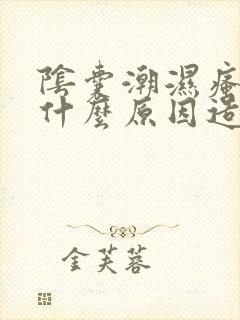 陰囊潮濕瘙
什麼原因造
金芙蓉